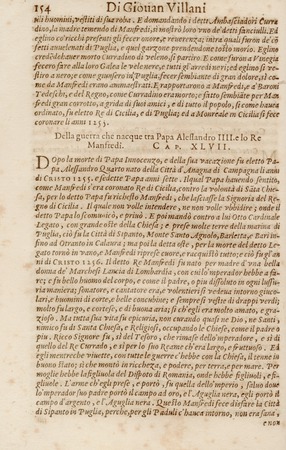 154 Di Giovan Villani
uili huomini, vestiti di sua roba. E domandando i detti Ambasciadori Curra
dino, la madre temendo di Manfredi, si mostrò loro vno de detti fanciulli. Ed
eglino co ricchi presenti gli fecer onore, e reuerenza; intra quali furono de' cõ
fetti auelenati di Puglia, e quel garzone prendendone tosto morìo. Eglino
credendosi morto Curradino di veleno, si partiro. E come furono a Vinegia
fecero fare alla loro Galea le vele nere, e tutti gl'arredi neri; ed eglino si ve-
stiro a nero; e come giunsero in Puglia, fecer sembiante di gran dolore, sì co-
me da Manfredi erano ammaestrati. E rapportarono a Manfredi, e a' Baroni
Tedeschi, e del Regno, come Curradino era morto, e fatto sembiante per Man
fredi gran corrotto, a grida di suoi amici, e di tutto il popolo, sì come hauea
ordinato, fu eletto Re di Cicilia, e di Puglia; ed a Monreale in Cicilia si fece
coronare gli anni 1255.
Della guerra che nacque tra Papa Alessandro IIII. e lo Re
Manfredi. CAP. XLVII.
Dopo la morte di Papa Innocenzo, e della sua vacazione fu eletto Pa-
pa Alessandro Quarto nato della Città d' Anagna di Campagna li anni
di CRISTO 1255. e sedette Papa anni sette. Il qual Papa hauendo sentito,
come Manfredi s'era coronato Re di Cicilia, contro la volontà di Sãta Chie-
sa, per lo detto Papa fu richiesto Manfredi, che lasciasse la Signoria del Re-
gno di Cicilia. Il quale non volle intendere, ne non volle vbbidire; onde il
detto Papa lo scomunicò, e priuò. E poi mandò contra lui Otto Cardinale
Legato, con grande oste della Chiesa; e prese molte terre della marina di
Puglia, ciò fu la Città di Sipanto, Monte Santo Agnolo, Barletta, e Bari in-
sino ad Otranto in Calaura; ma poi la detta oste, per la morte del detto Le-
gato tornò in vano, e Manfredi riprese cuore, e racquistò tutto; e ciò fu gl'an
ni di CRISTO 1256. Il detto Re Manfredi fu nato per madre d' vna bella
donna de' Marchesi Lancia di Lombardia, con cui lo 'mperador hebbe a fa-
re; e fu bello huomo del corpo, e come il padre, o piu dissoluto in ogni lussu-
ria maniera; sonatore, e cantatore era, e volentieri si vedeua intorno giuco-
lari, e huomini di corte, e belle concubine; e sempre vestie di drappi verdi;
molto fu largo, e cortese, e di buona aria; si ch' egli era molto amato, e gra-
zioso. Ma tutta sua vita fu epicuria, non curando quasi ne Dio, ne Santi,
nimico fu di Santa Chiesa, e Religiosi, occupando le Chiese, come il padre o
piu. Ricco Signore fu, sì del Tesoro, che rimase dello 'mperadore, e sì di
quello del Re Currado, e sì per lo suo Reame ch' era largo, e fruttuoso. Ed
egli mentreche viuette, con tutte le guerre c'hebbe con la Chiesa, il tenne in
buono stato; sì che montò in ricchezza, e podere, per terra, e per mare. Per
moglie hebbe la figliuola del Dispoto di Romania, onde hebbe figliuoli, e fi-
gliuole. L'arme ch' egli prese, e portò, fu quella dello 'mperio, saluo doue
lo 'mperador suo padre portò il campo ad oro, e l' Aguglia nera, egli portò il
campo d'argento, e l' Aguglia nera. Questo Manfredi fece disfare la Città
di Sipanto in Puglia, perche, per gli Paduli c'hauea intorno, non era sana,
e non